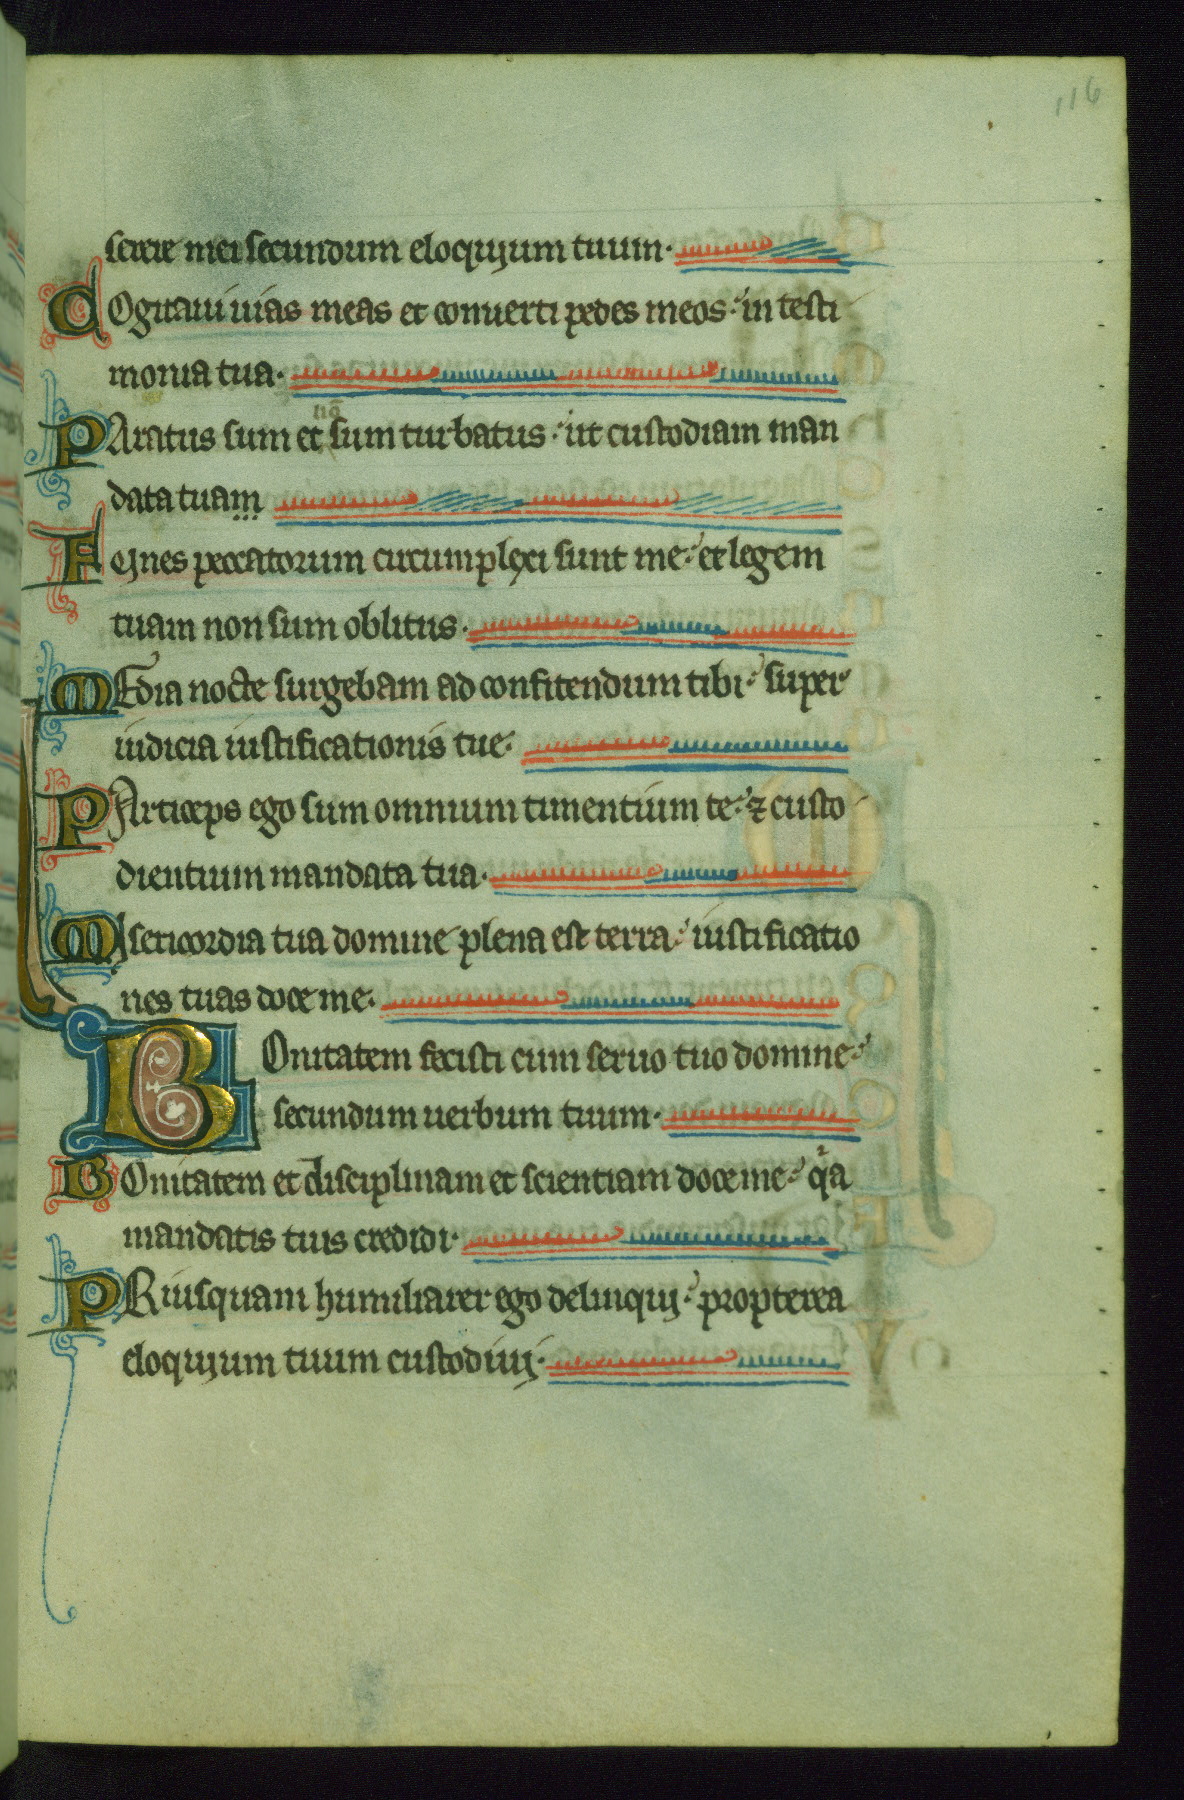 116
serere mei secundum eloquyum tuum·
COgitaui uias meas et conuerti pedes meos· in testi
monia tua·
PAratus sum et nō sum turbatus· ut custodiam man
data tuam
Funes peccatorum circumplexi sunt me· et legem
tuam non sum oblitus·
MEdia nocte surgebam ad confitendum tibi· super
iudicia iustificationis tue·
PArticeps ego sum omnium timentium te· ⁊ custo
dientium mandata tua·
MIsericordia tua domine plena est terra· iustificatio
nes tuas doce me·
BOnitatem fecisti cum seruo tuo domine·
secundum uerbum tuum·
BOnitatem et disciplinam et scientiam doce me· qͣa
mandatis tuis credidi·
PRiusquam humiliarer ego deliquy· propterea
eloquyum tuum custodiuy·